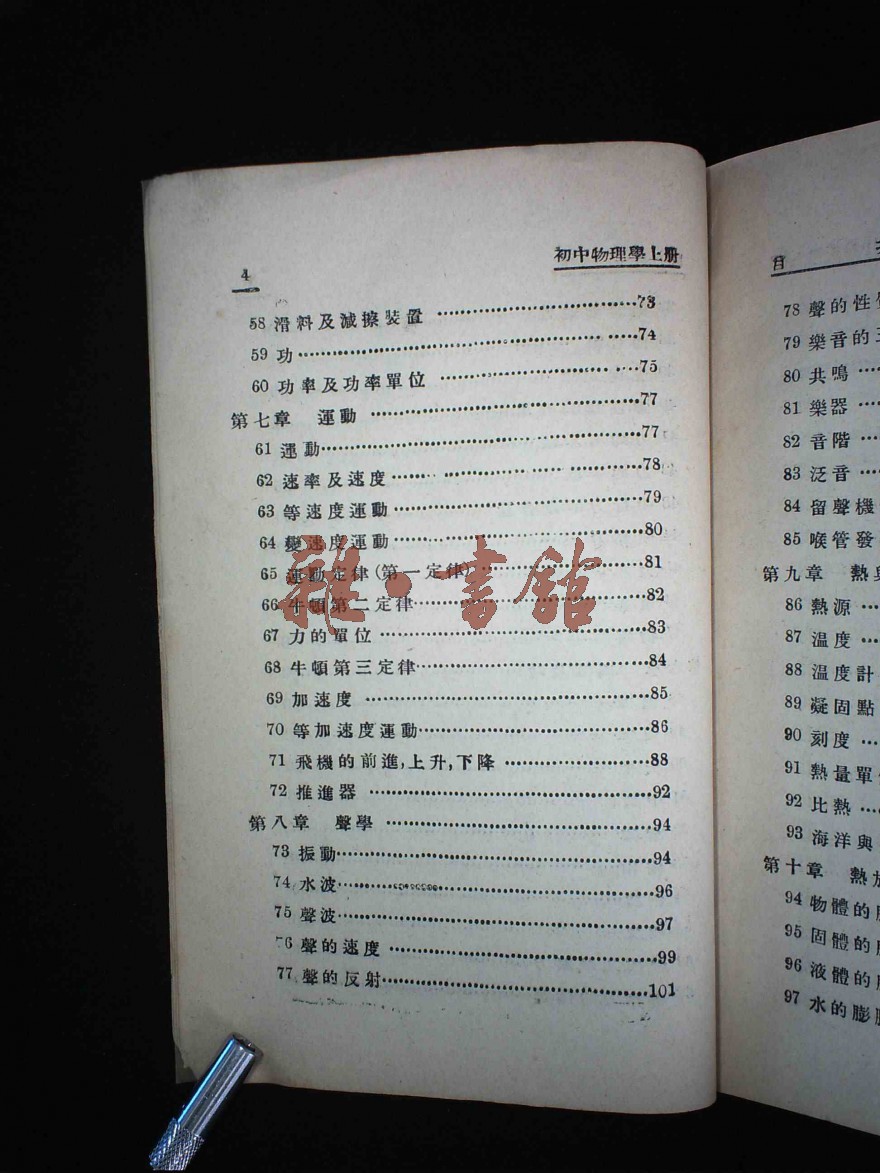 4
初中物理學上册
58 滑料及減擦裝置 73
59 功 74
60 功率及功率單位 75
第七章 運動 77
61 運動 77
62 速率及速度 78
63 等速度運動 79
64 變速度運動 80
65 運動定律(第一定律) 81
66 牛頓第二定律 82
67 力的單位 83
68 牛頓第三定律 84
69 加速度 85
70 等加速度運動 86
71 飛機的前進,上升,下降 88
72 推進器 92
第八章 聲學 94
73 振動 94
74 水波 96
75 聲波 97
76 聲的速度 99
77 聲的反射 101
雜·書館
目
78 聲的性
79 樂音的
80 共鳴
81 樂器
82 音階
83 泛音
84 留聲機
85 喉管發
第九章 熱與
86 熱源
87 温度
88 温度計
89 凝固點
90 刻度
91 熱量單
92 比熱
93 海洋與
第十章 熱
94 物體的
95 固體的
96 液體的
97 水的膨